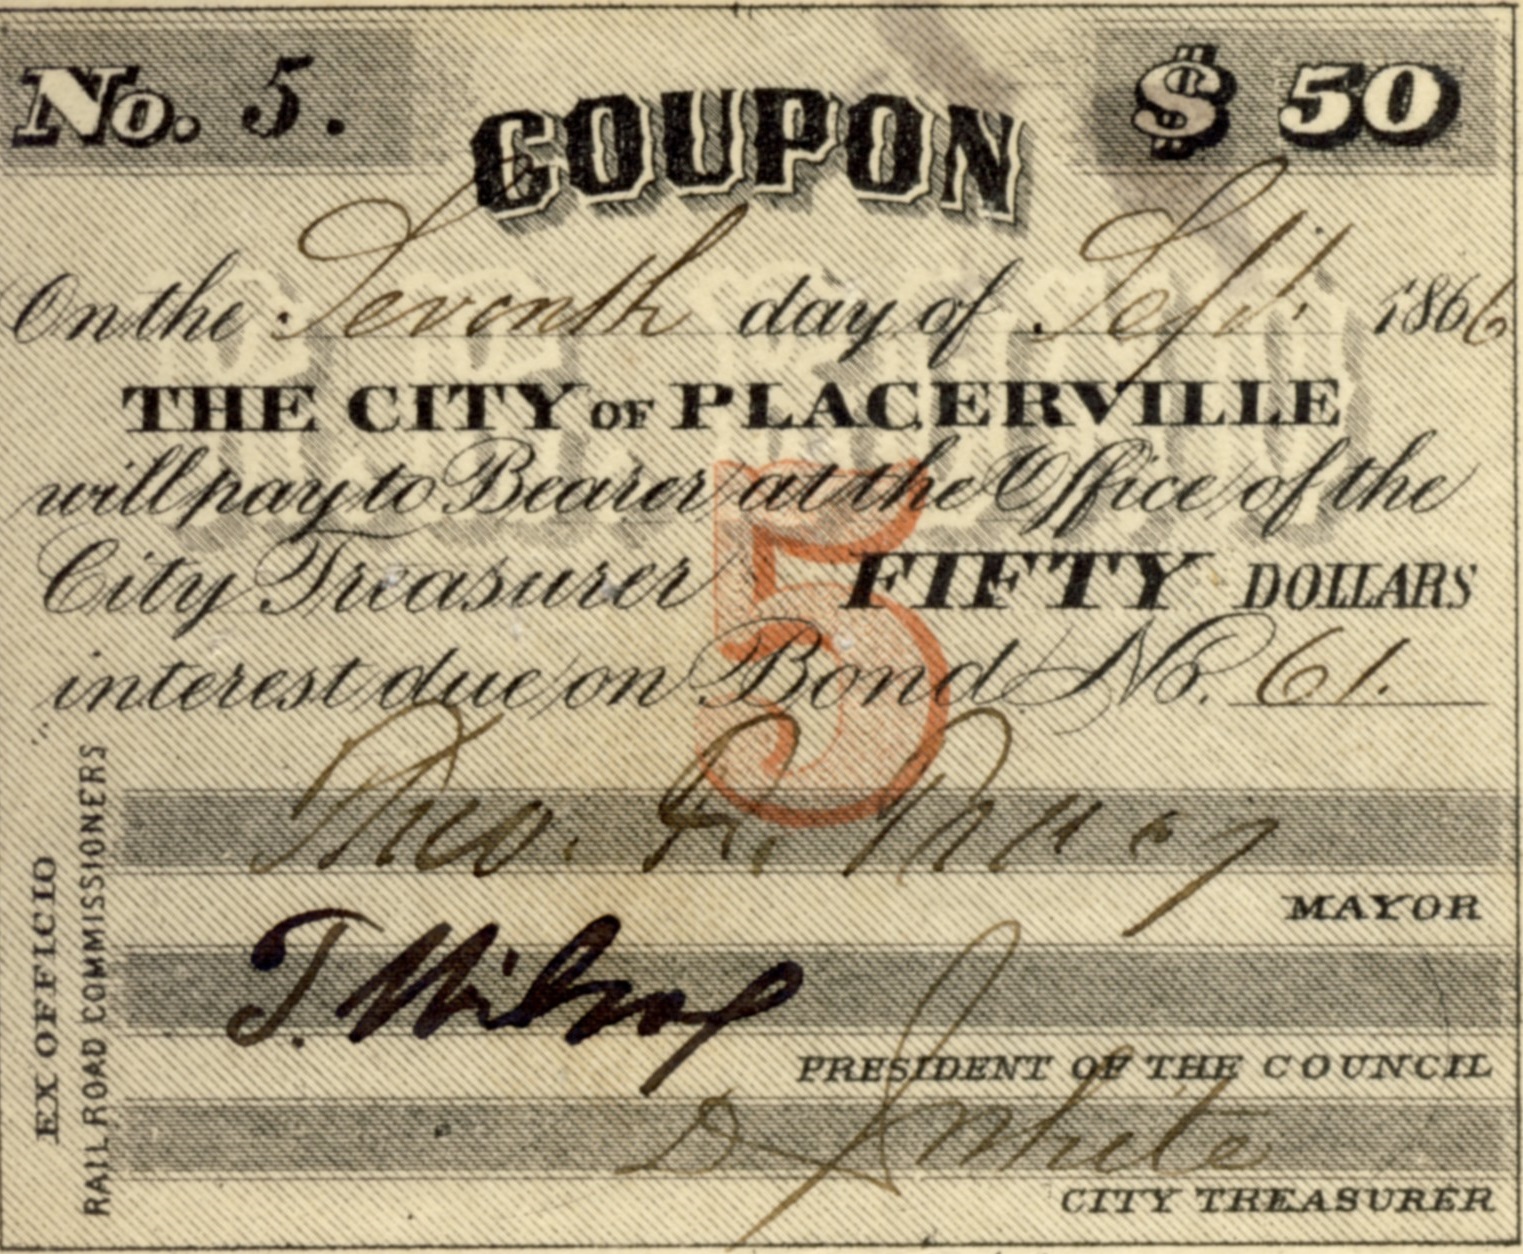 No. 5.
COUPON
$ 50
On the Seventh day of Sept. 1866
THE CITY OF PLACERVILLE
will pay to Bearer at the Office of the
City Treasurer FIFTY DOLLARS
interest due on Bond No. 61.
5
Thos.
MAYOR
J.
PRESIDENT OF THE COUNCIL
White
CITY TREASURER
EX OFFICIO
RAIL ROAD COMMISSIONERS